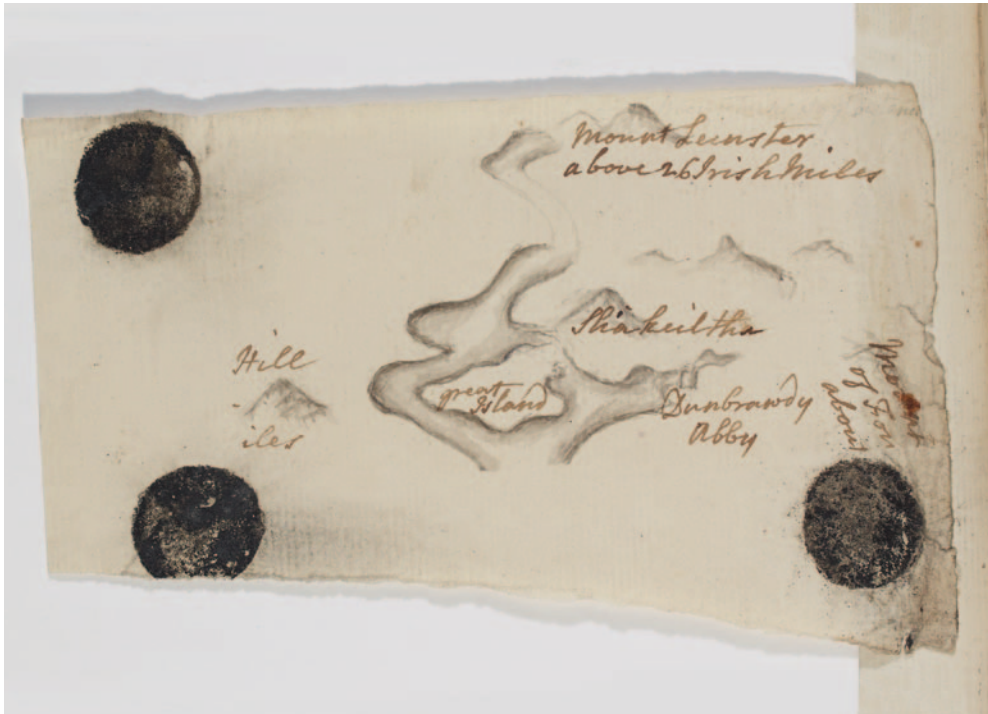 Mount Leinster
above 26 Irish Miles
Sliakeiltha
Hill
iles
great
Island
Dunbrawdy
Abby
of
about